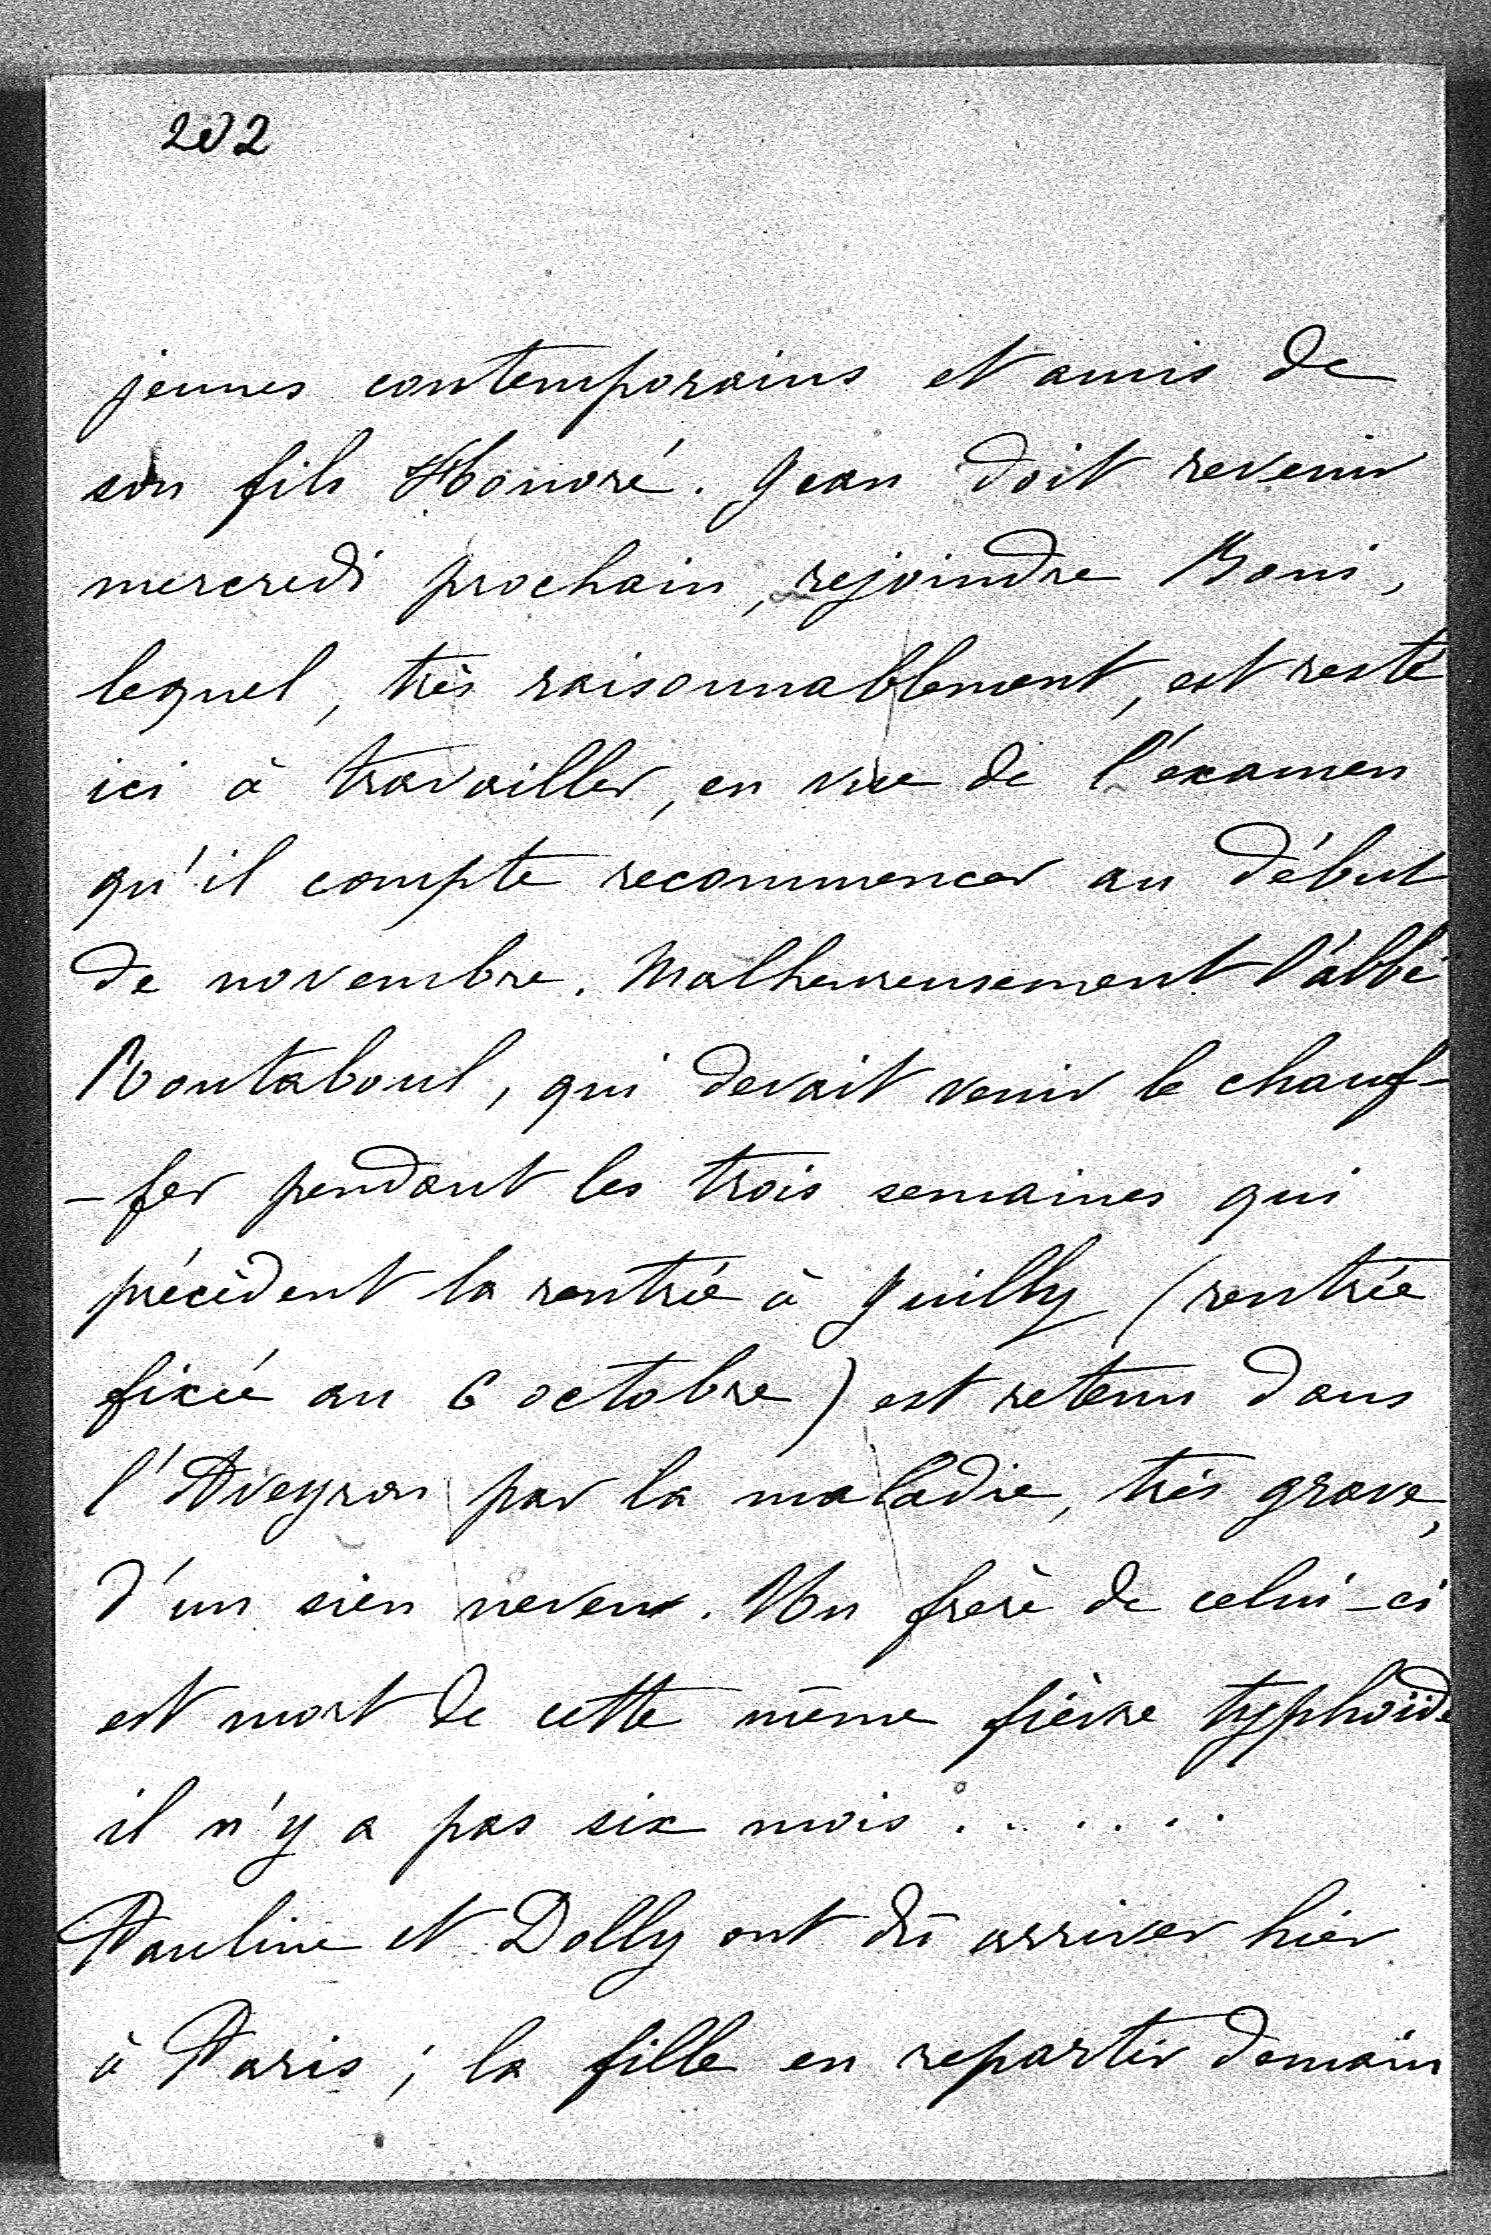 202
jeunes contemporains et amis de
son fils Honoré. Jean doit revenir
mercredi prochain, rejoindre Boni,
lequel, très raisonnablement, est resté
ici à travailler, en vue de l'examen
qu'il compte recommencer au début
de novembre. Malheureusement l'abbé
Montaboul, qui devait venir le chauf-
-fer pendant les trois semaines qui
précèdent la rentrée à Juilly (rentrée
fixée au 6 octobre) est retenu dans
l'Aveyron par la maladie, très grave,
d'un sien neveu. Un frère de celui-ci
est mort de cette même fièvre typhoïde
il n'y a pas six mois . . . . . .
Pauline et Dolly ont dû arriver hier
à Paris ; la fille en repartir demain